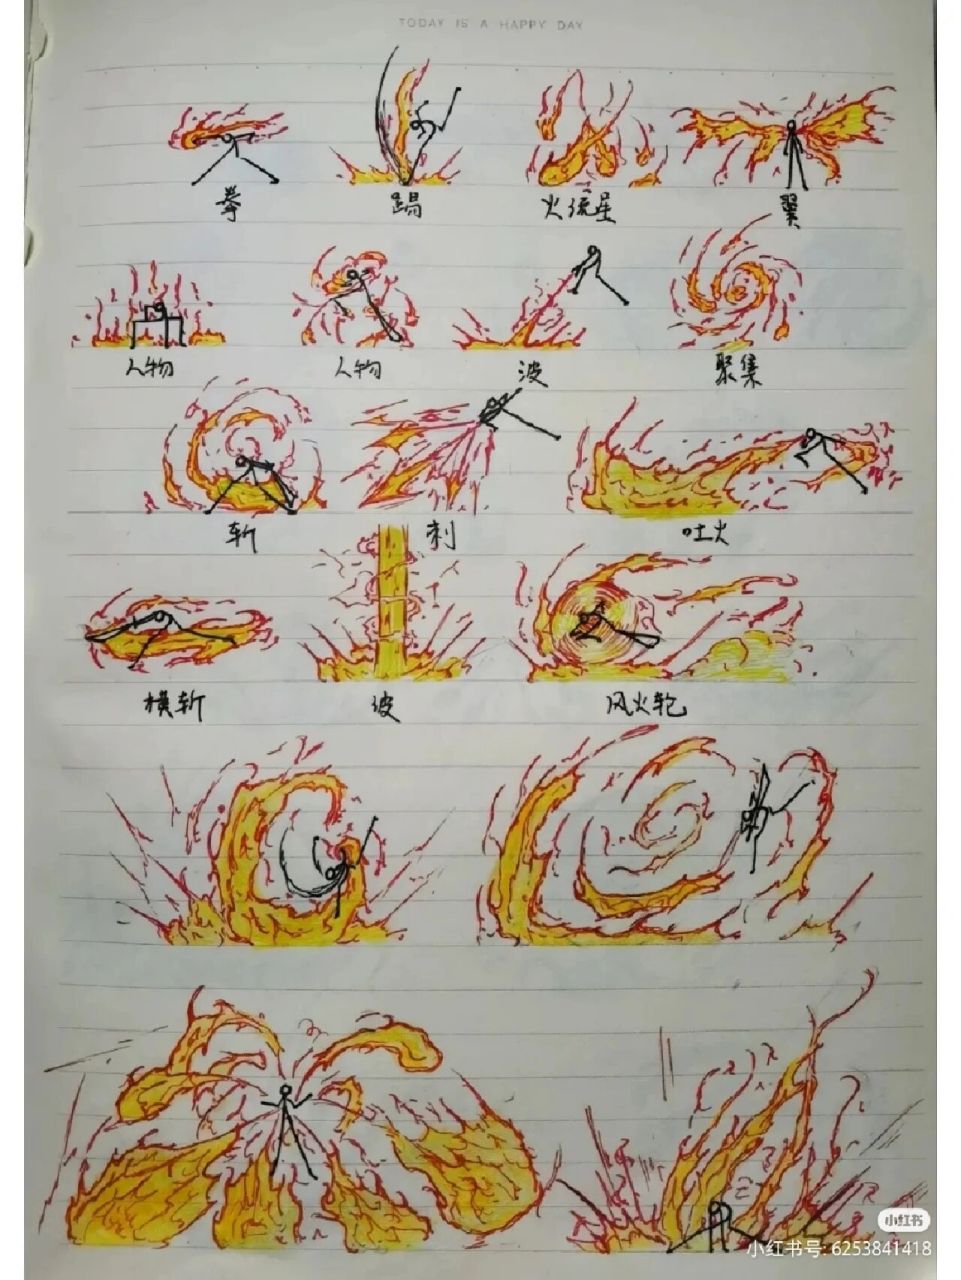 TODAY IS A HAPPY DAY
拳 踢 火流星 翼
人物 人物 波 聚集
斩 刺 吐火
横斩 波 风火轮
小红书
小红书号: 6253841418